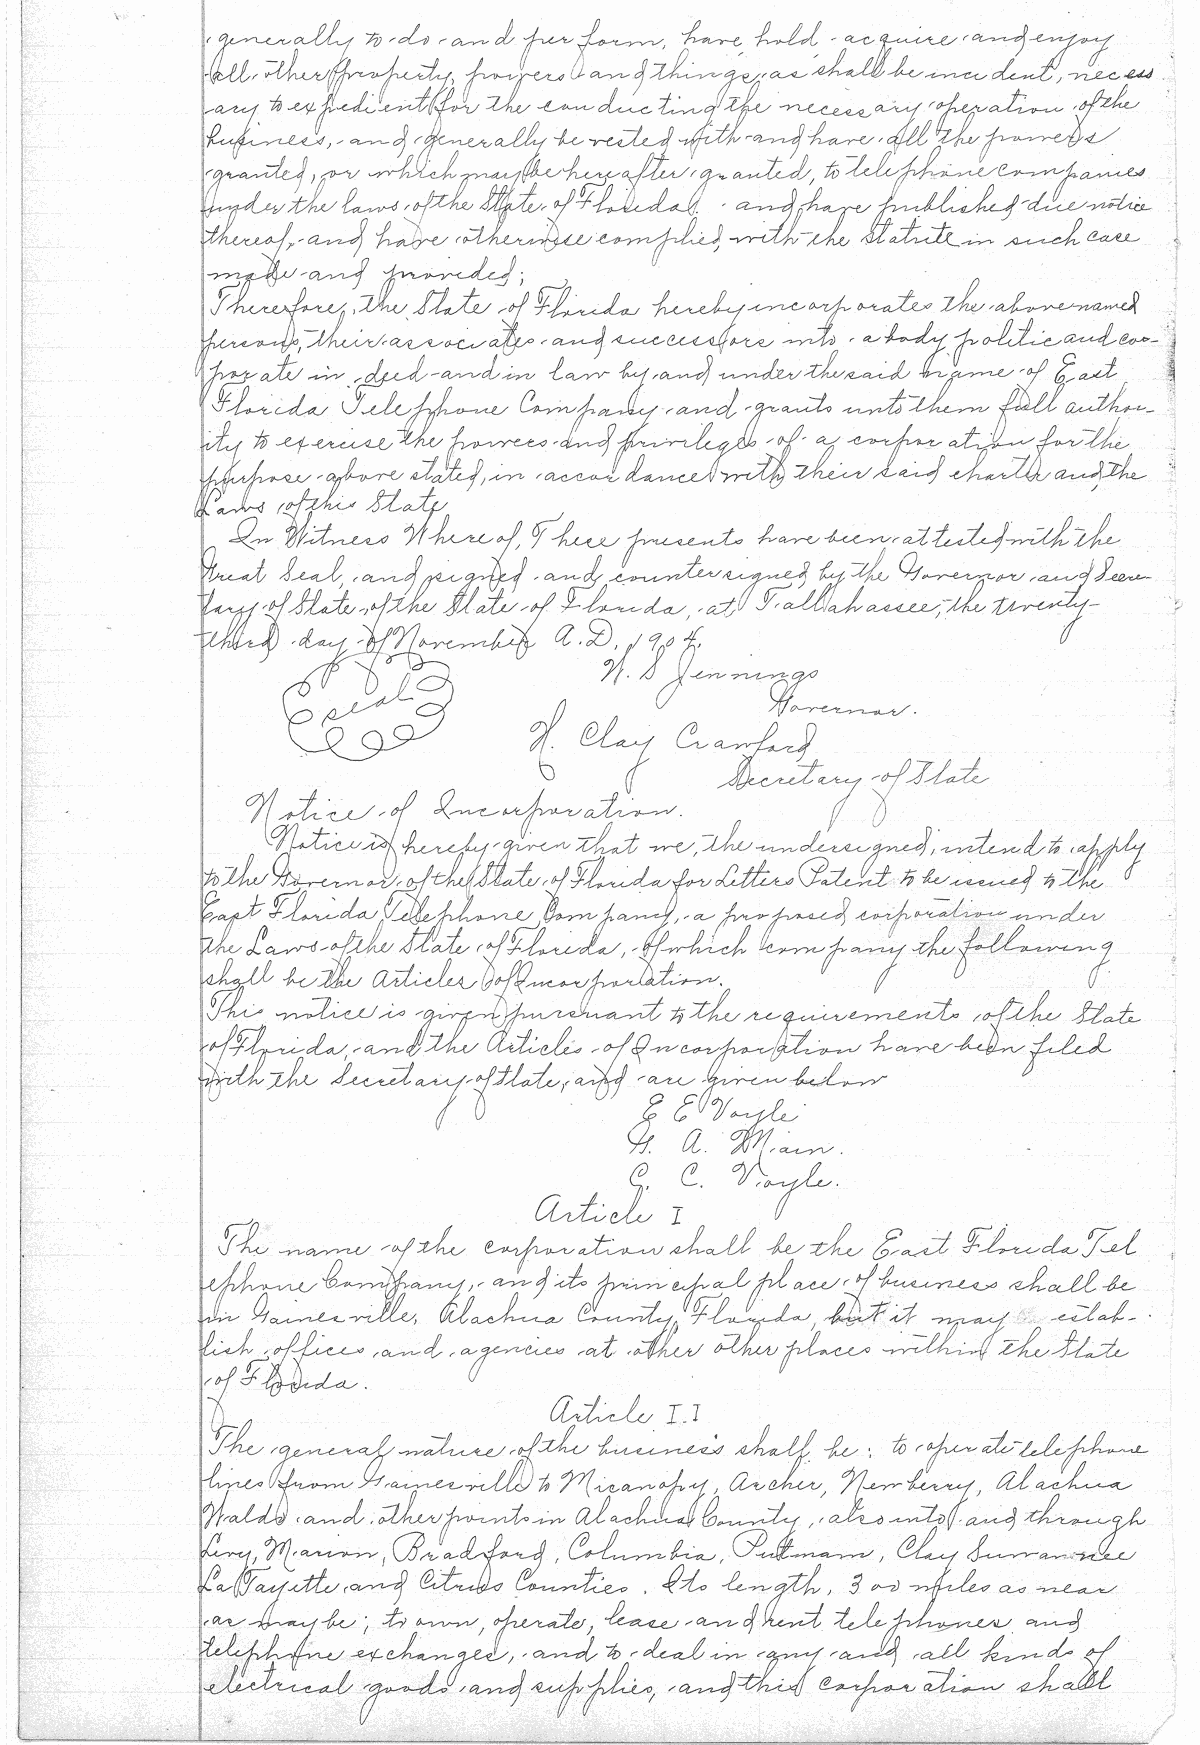 generally to do and perform, have, hold acquire and enjoy
all other property, powers and things, as shall be incident, necess
ary to expedient for the conducting the necessary operation of the
business, and generally be vested with and have all the powers
granted, or which may be hereafter granted, to telephone companies
under the laws of the State of Florida. and have published due notice
thereof, and have otherwise complied with the statute in such case
made and provided;
Therefore, the State of Florida hereby incorporates the above named
persons, their associates and successors into a body politic and cor-
porate in deed and in law by and under the said name of East
Florida Telephone Company and grants unto them full author-
ity to exercise the powers and privileges of a corporation for the
purpose above stated, in accordance with their said charter and the
Laws of this State
In Witness Whereof, These presents have been attested with the
Great Seal, and signed and countersigned by the Governor and Secre-
tary of State of the State of Florida, at Tallahassee, the twenty-
third day of November A.D. 1904.
W. S Jennings
Seal
Governor.
H. Clay Crawford
Secretary of State
Notice of Incorporation.
Notice is hereby given that we, the undersigned, intend to apply
to the Governor of the State of Florida for Letters Patent to be issued to the
East Florida Telephone Company, a proposed corporation under
the Laws of the State of Florida, of which company the following
shall be the Articles of Incorporation.
This notice is given pursuant to the requirements of the State
of Florida, and the Articles of Incorporation have been filed
with the Secretary of State, and are given below
E E Voyle
G. A. Main.
G. C. Voyle.
Article I
The name of the corporation shall be the East Florida Tel
ephone Company, and its principal place of business shall be
in Gainesville, Alachua County, Florida, but it may estab-
lish offices and agencies at other other places within the State
of Florida.
Article I.I
The general nature of the business shall be: to operate telephone
lines from Gainesville to Micanopy, Archer, Newberry, Alachua
Waldo and other points in Alachua County, also into and through
Levy, Marion, Bradford, Columbia, Putmam, Clay Suwannee
La Fayette and Citrus Counties. Its length, 300 miles as near
as may be; to own, operate, lease and rent telephones and
telephone exchanges, and to deal in any and all kinds of
electrical goods and supplies, and this corporation shall